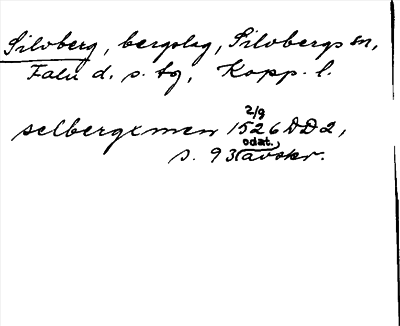 Silvberg, bergslag, Silvbergs sn,
Falu d. s. tg, Kopp. l.
2/9
selbergxmen 1526 DD2,
odat.,
s. 93 (avskr.